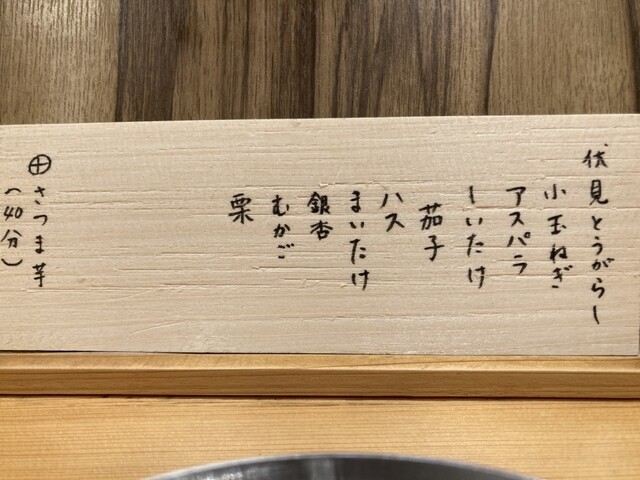 伏見とうがらし
小玉ねぎ
アスパラ
しいたけ
茄子
ハス
まいたけ
銀杏
むかご
栗
㊉さつま芋
(40分)